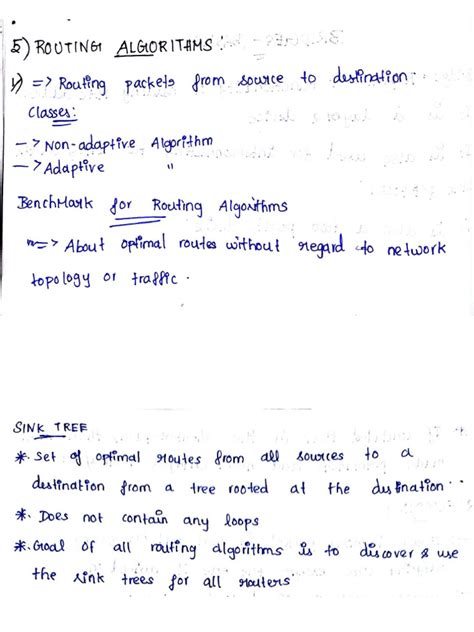 5) ROUTING ALGORITHMS :
1) => Routing packets from source to destination;
Classes:
-> Non-adaptive Algorithm
-> Adaptive "
BenchMark for Routing Algorithms
=> About optimal routes without regard to network
topology or traffic .
SINK TREE
*. Set of optimal routes from all sources to a
destination from a tree rooted at the dustination.
*. Does not contain any loops
*. Goal of all routing algorithms is to discover & use
the sink trees for all routers